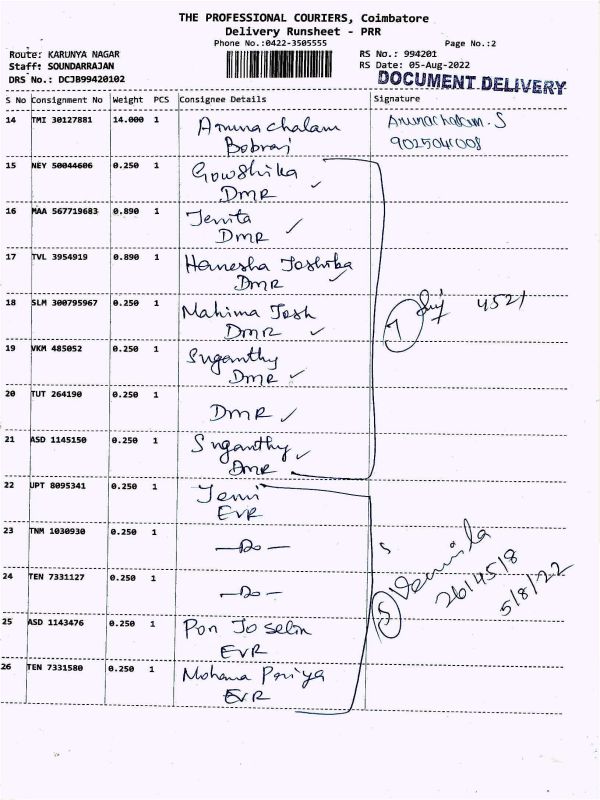 THE PROFESSIONAL COURIERS, Coimbatore
Delivery Runsheet - PRR
Phone No.:0422-3505555
Page No.:2
Route: KARUNYA NAGAR
RS No.: 994201
Staff: SOUNDARRAJAN
RS Date: 05-Aug-2022
DRS No.: DCJB99420102
DOCUMENT DELIVERY
S No Consignment No Weight PCS Consignee Details Signature
14 TMI 30127881 14.000 1 Arunachalam Arunachalam. S
Bobraj
15 NEY 50044606 0.250 1 Gowshika
DMR ✓
16 MAA 567719683 0.890 1 Jenita
DMR ✓
17 TVL 3954919 0.890 1 Hanesha Joshika
DMR ✓
18 SLM 300795967 0.250 1 Mahima Josh
DMR ✓
7 4521
19 VKM 485052 0.250 1 Suganthy
DMR ✓
20 TUT 264190 0.250 1
DMR ✓
21 ASD 1145150 0.250 1 Suganthy ✓
DMR
22 UPT 8095341 0.250 1 Jemi
EVR
23 TNM 1030930 0.250 1 —Do—
24 TEN 7331127 0.250 1 —Do—
5 Vennila
2614518
5/8/22
25 ASD 1143476 0.250 1 Pon Joselin
EVR
26 TEN 7331580 0.250 1 Mohana Priya
EVR